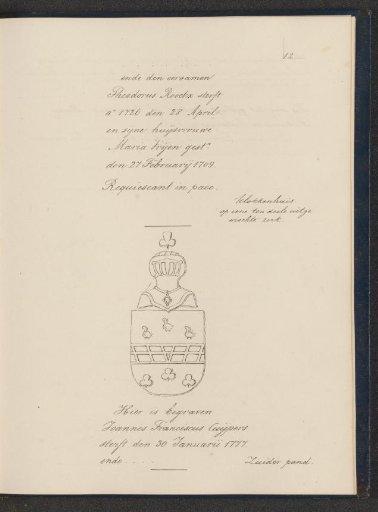 12
ende den eersamen
Theodorus Roockx sterft
a° 1726 den 28 April
en syne huijsvrouwe
Maria Vrijen gest.
den 27 February 1709
Requiescant in pace.
Klokkenhuis
op eene ten deele uitge
wischte zerk.
Hier is begraven
Joannes Franciscus Cuijpers
sterft den 30 Januarii 1777
ende . . . .
Zuider pand.